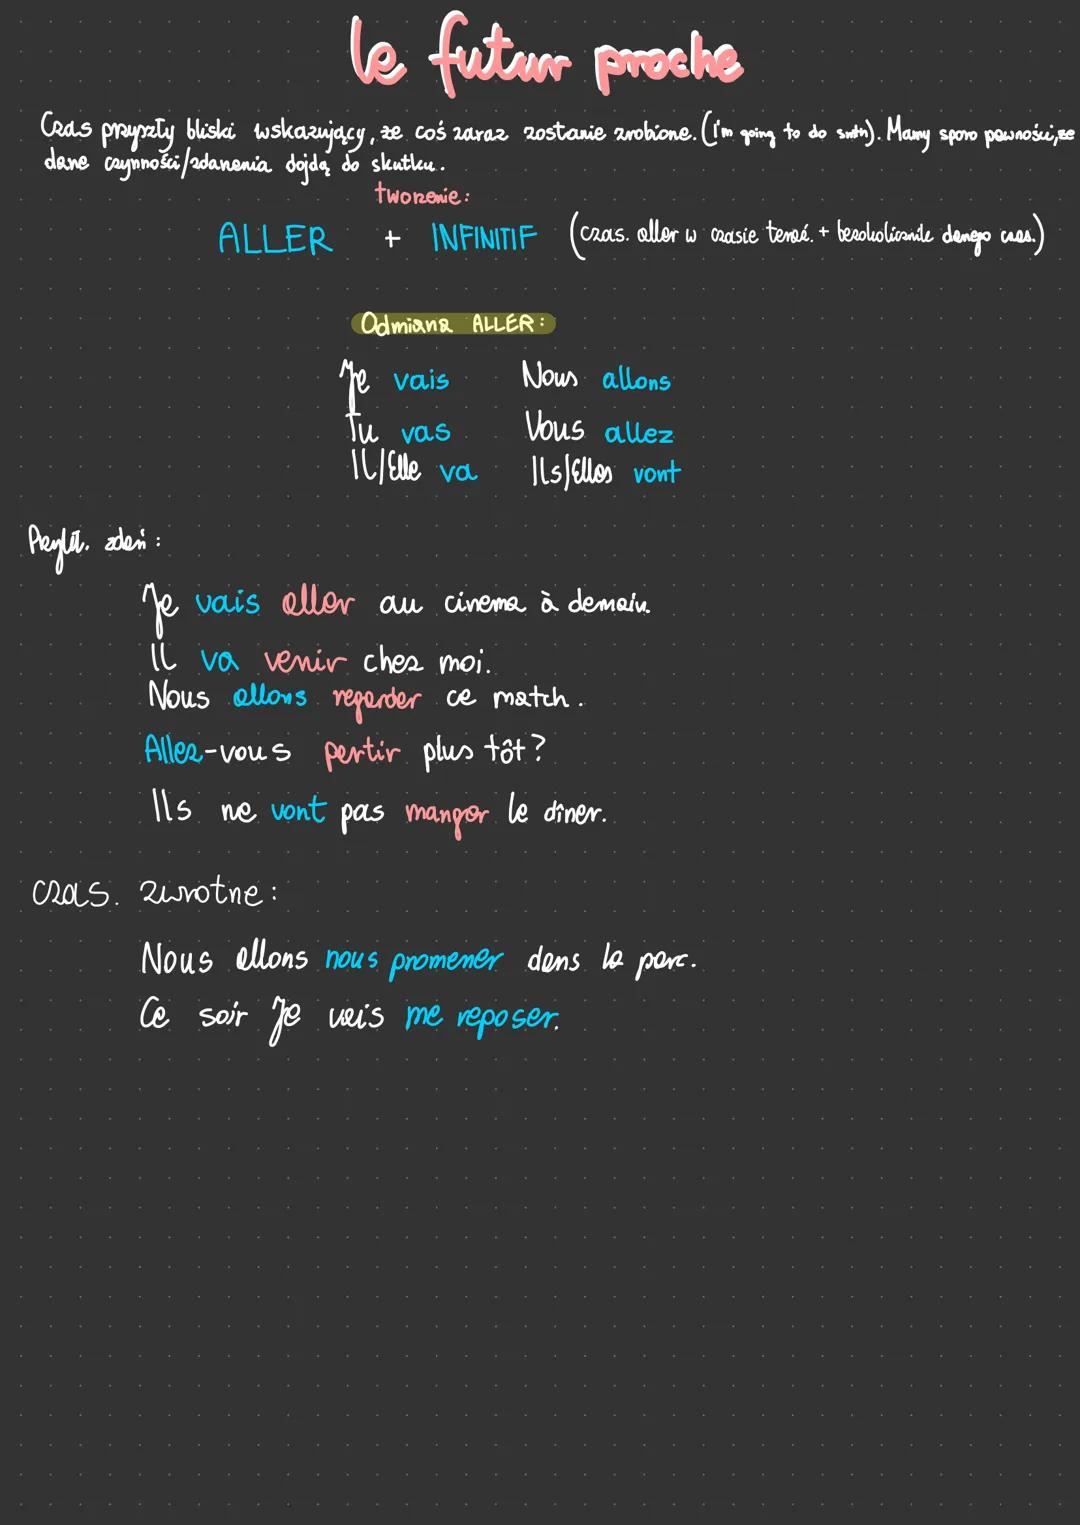 le futur proche
Czas przyszły bliski wskazujący, że coś zaraz zostanie zrobione. (I'm going to do smth). Mamy sporo pewności, że
dane czynności/zdarzenia dojdą do skutku.
tworzenie:
ALLER + INFINITIF (czas. aller w czasie teraź. + bezokolicznik danego czas.)
Odmiana ALLER:
Je vais Nous allons
Tu vas Vous allez
Il/Elle va Ils/Elles vont
Przykł. zdań:
Je vais aller au cinema à demain.
Il va venir chez moi.
Nous allons regarder ce match.
Allez-vous partir plus tôt?
Ils ne vont pas manger le dîner.
czas. zwrotne:
Nous allons nous promener dans la parc.
Ce soir Je vais me reposer.